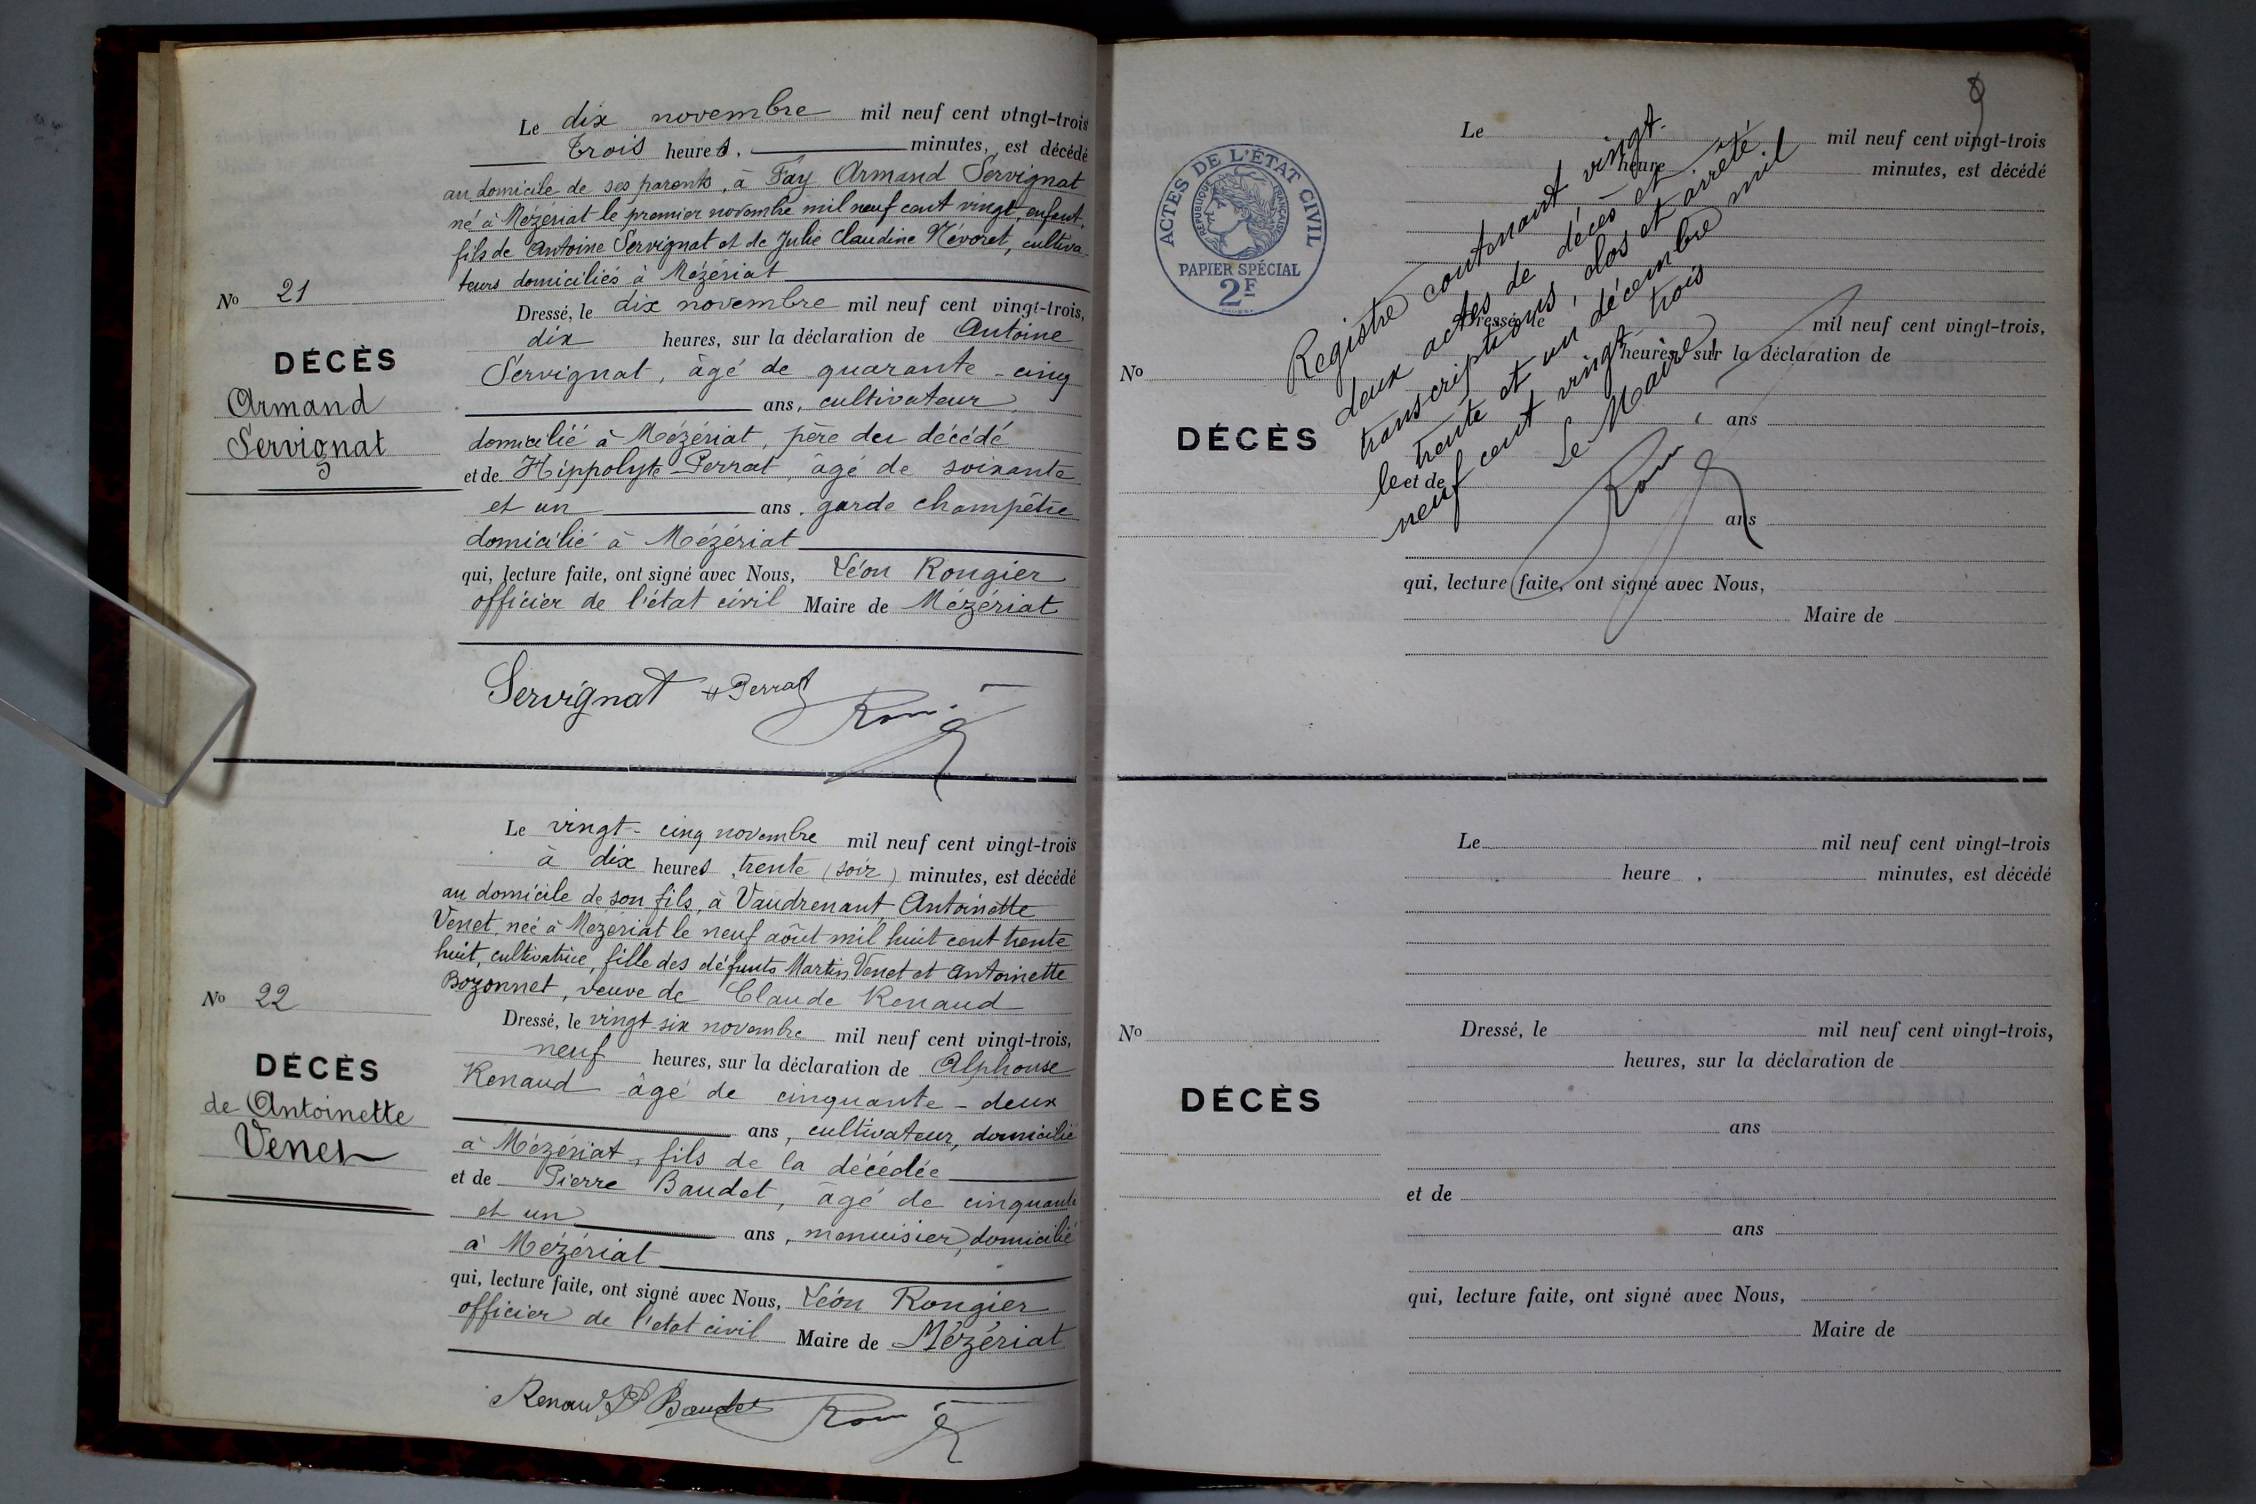 Le dix novembre mil neuf cent vingt-trois
trois heures, minutes, est décédé
au domicile de ses parents, à Fay Armand Servignat
né à Mézériat le premier novembre mil neuf cent vingt, enfant,
fils de Antoine Servignat et de Julie Claudine Névoret, cultiva-
teurs domiciliés à Mézériat
No 21
Dressé, le dix novembre mil neuf cent vingt-trois,
dix heures, sur la déclaration de Antoine
DÉCÈS
Servignat, âgé de quarante-cinq
Armand
ans, cultivateur,
Servignat
domicilié à Mézériat, père du décédé
et de Hippolyte Perrat, âgé de soixante
et un ans, garde champêtre
domicilié à Mézériat
qui, lecture faite, ont signé avec Nous, Léon Rongier
officier de l'état civil Maire de Mézériat
Servignat H Perrat
Le vingt-cinq novembre mil neuf cent vingt-trois
à dix heures, trente (soir) minutes, est décédé
au domicile de son fils, à Vaudrenant, Antoinette
Venet, née à Mézériat le neuf août mil huit cent trente
huit, cultivatrice, fille des défunts Martin Venet et Antoinette
Bozonnet, veuve de Claude Renaud
No 22
Dressé, le vingt-six novembre mil neuf cent vingt-trois,
neuf heures, sur la déclaration de Alphonse
DÉCÈS
Renaud âgé de cinquante-deux
de Antoinette
ans, cultivateur, domicilié
Venet
à Mézériat, fils de la décédée
et de Pierre Baudet, âgé de cinquante
et un ans, menuisier, domicilié
à Mézériat
qui, lecture faite, ont signé avec Nous, Léon Rongier
officier de l'état civil Maire de Mézériat
Renaud P Baudet
Le mil neuf cent vingt-trois
heure minutes, est décédé
ACTES DE L'ÉTAT CIVIL
RÉPUBLIQUE FRANÇAISE
PAPIER SPÉCIAL
2F
Registre contenant vingt-
deux actes de décès et
transcriptions, clos et arrêté
le trente et un décembre mil
neuf cent vingt trois
Le Maire,
Dressé, le mil neuf cent vingt-trois,
heures, sur la déclaration de
No
DÉCÈS
ans
et de
ans
qui, lecture faite, ont signé avec Nous,
Maire de
Le mil neuf cent vingt-trois
heure , minutes, est décédé
No
Dressé, le mil neuf cent vingt-trois,
heures, sur la déclaration de
DÉCÈS
ans
et de
ans
qui, lecture faite, ont signé avec Nous,
Maire de